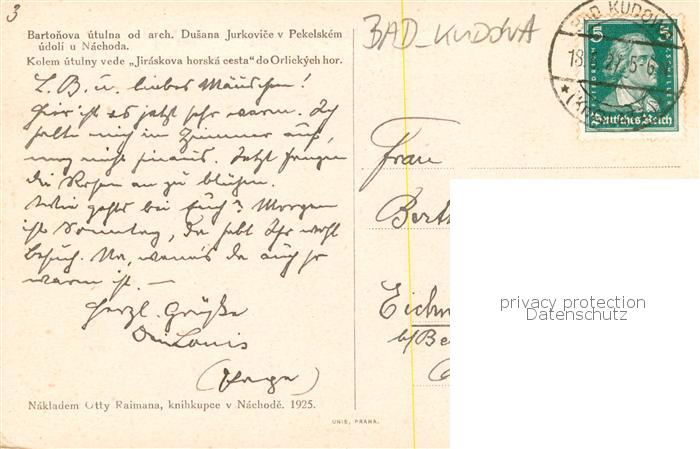 3
Bartoňova útulna od arch. Dušana Jurkoviče v Pekelském
údolí u Náchoda.
Kolem útulny vede „Jiráskova horská cesta" do Orlických hor.
BAD-KUDOVA
BAD KUDOWA
5 5
Deutsches Reich
L. B. u. liebes Mäuschen!
Hier ist es jetzt sehr warm. Ich
halte mich im Zimmer auf,
mag nicht hinaus. Jetzt fangen
die Rosen an zu blühen.
Wie gehts bei Euch? Morgen
ist Sonntag, da habt Ihr wohl
Besuch. Na, wenn's da auch so
warm ist. —
Herzl. Grüße
Louis
Frau
Berth
Eichw
b/Be
Nákladem Otty Raimana, knihkupce v Náchodě. 1925.
UNIE, PRAHA.
privacy protection
Datenschutz